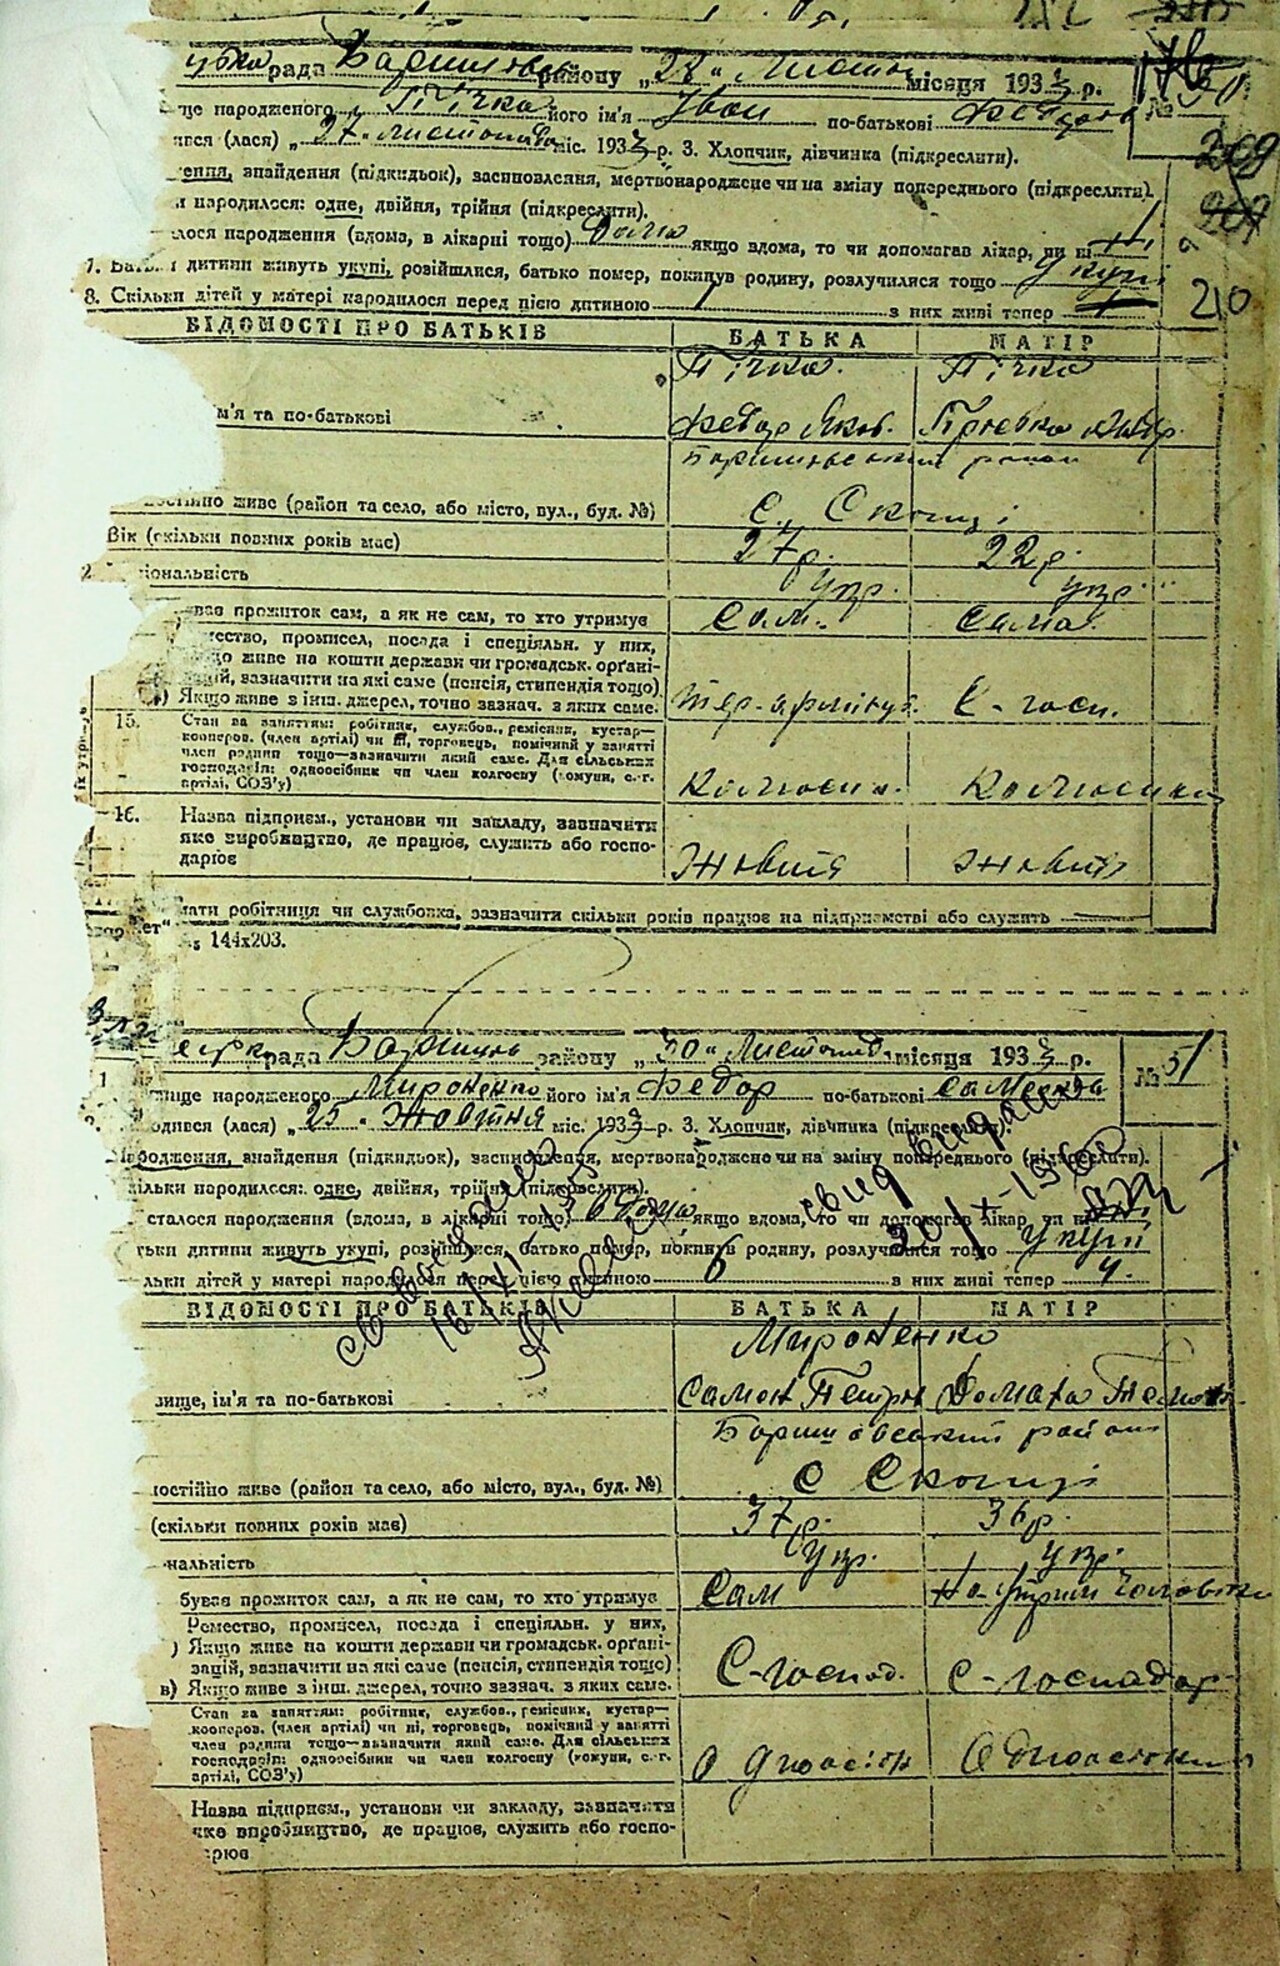 рада Баришівськ району „28“ Листопад місяця 193 р.
ще народженого Пічка його ім'я Іван по-батькові Федоров №
ився (лася) „27“ листопада міс. 1933 р. 3. Хлопчик, дівчинка (підкреслити).
ення, знайдення (підкидьок), засиновлення, мертвонароджене чи на зміну попереднього (підкреслити).
и народилося: одне, двійня, трійня (підкреслити).
лося народження (вдома, в лікарні тощо) Дома якщо вдома, то чи допомагав лікар, чи ні
7. Батьки дитини живуть укупі, розійшлися, батько помер, покинув родину, розлучилися тощо укупі
8. Скільки дітей у матері народилося перед цією дитиною 1 з них живі тепер
210
ВІДОМОСТІ ПРО БАТЬКІВ БАТЬКА МАТІР
Пічка. Пічка
м'я та по-батькові Федор Яков.
район
остійно живе (район та село, або місто, вул., буд. №) с. Скопці
Вік (скільки повних років має) 27р. 22р.
іональність укр. укр.
ував прожиток сам, а як не сам, то хто утримує сам. сама.
ество, промисел, посада і спеціяльн. у них,
що живе на кошти держави чи громадськ. орґані-
зацій, зазначити на які саме (пенсія, стипендія тощо)
в) Якщо живе з інш. джерел, точно зазнач. з яких саме. С-госп.
15. Стан за заняттям: робітник, службов., ремісник, кустар—
кооперов. (член артілі) чи ні, торговець, помічний у занятті
член родини тощо—зазначити який саме. Для сільських
господарів: одноосібник чи член колгоспу (комуни, с.-г.
артілі, СОЗ'у) Колгоспн. Колгоспниц
16. Назва підприєм., установи чи закладу, зазначити
яке виробництво, де працює, служить або госпо-
дарює Жовтня Жовтня
мати робітниця чи службовка, зазначити скільки років працює на підприємстві або служить
144х203.
рада Баришів району „30“ Листопад місяця 1933 р. № 51
ище народженого Мироненко його ім'я Федор по-батькові Самонов
одився (лася) „25“ Жовтня міс. 1933 р. 3. Хлопчик, дівчинка (підкреслити).
Народження, знайдення (підкидьок), засиновлення, мертвонароджене чи на зміну попереднього (підкреслити).
ільки народилися: одне, двійня, трійня (підкреслити).
сталося народження (вдома, в лікарні тощо) вдома якщо вдома, то чи допомагав лікар, чи ні
тьки дитини живуть укупі, розійшлися, батько помер, покинув родину, розлучилися тощо укупі
льки дітей у матері народилося перед цією дитиною 6 з них живі тепер 4.
свид
ВІДОМОСТІ ПРО БАТЬКІВ БАТЬКА МАТІР
Мироненко
вище, ім'я та по-батькові Самон Петров Домаха
Баришівський район
постійно живе (район та село, або місто, вул., буд. №) с Скопці
(скільки повних років має) 37р. 36р.
нальність укр. укр.
бував прожиток сам, а як не сам, то хто утримує Сам На утрим чоловіка
Ремество, промисел, посада і спеціяльн. у них,
) Якщо живе на кошти держави чи громадськ. орґані-
зацій, зазначити на які саме (пенсія, стипендія тощо)
в) Якщо живе з інш. джерел, точно зазнач. з яких саме. С-господ. С-господар
Стан за заняттям: робітник, службов., ремісник, кустар—
кооперов. (член артілі) чи ні, торговець, помічний у занятті
член родини тощо—зазначити який саме. Для сільських
господарів: одноосібник чи член колгоспу (комуни, с.-г.
артілі, СОЗ'у) Одноосібн Одноосібниц
Назва підприєм., установи чи закладу, зазначити
яке виробництво, де працює, служить або госпо-
арює